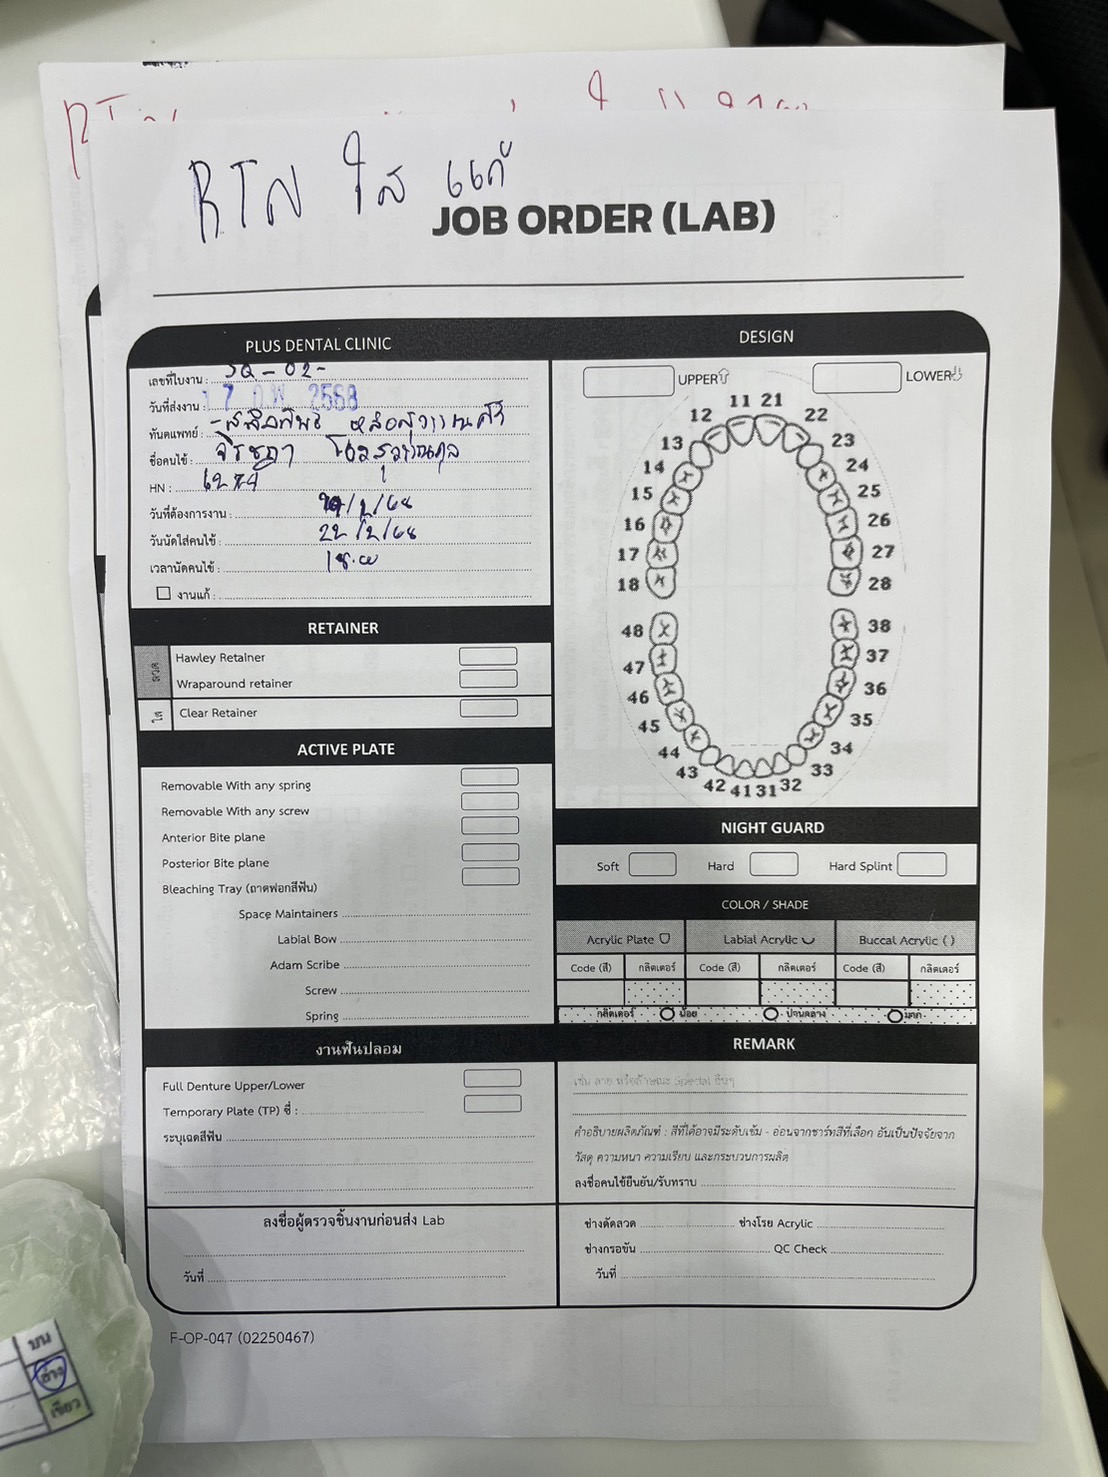 RTN ใส แก้
JOB ORDER (LAB)
PLUS DENTAL CLINIC
เลขที่ใบงาน : SQ-02-
วันที่ส่งงาน : 17 ก.พ. 2568
ทันตแพทย์ :
ชื่อคนไข้ : จิรชญา
HN :
วันที่ต้องการงาน :
วันนัดใส่คนไข้ : 22/2/68
เวลานัดคนไข้ :
งานแก้ :
RETAINER
ลวด
Hawley Retainer
Wraparound retainer
ใส
Clear Retainer
ACTIVE PLATE
Removable With any spring
Removable With any screw
Anterior Bite plane
Posterior Bite plane
Bleaching Tray (ถาดฟอกสีฟัน)
Space Maintainers
Labial Bow
Adam Scribe
Screw
Spring
งานฟันปลอม
Full Denture Upper/Lower
Temporary Plate (TP) ซี่ :
ระบุเฉดสีฟัน
ลงชื่อผู้ตรวจชิ้นงานก่อนส่ง Lab
วันที่
DESIGN
UPPER LOWER
11 21
12 22
13 23
14 24
15 25
16 26
17 27
18 28
48 38
47 37
46 36
45 35
44 34
43 33
42 41 31 32
NIGHT GUARD
Soft Hard Hard Splint
COLOR / SHADE
Acrylic Plate Labial Acrylic Buccal Acrylic ( )
Code (สี) กลิตเตอร์ Code (สี) กลิตเตอร์ Code (สี) กลิตเตอร์
กลิตเตอร์ น้อย ปานกลาง มาก
REMARK
เช่น ลาย หรือลักษณะ Special อื่นๆ
คำอธิบายผลิตภัณฑ์ : สีที่ได้อาจมีระดับเข้ม - อ่อนจากชาร์ทสีที่เลือก อันเป็นปัจจัยจาก
วัสดุ ความหนา ความเรียบ และกระบวนการผลิต
ลงชื่อคนไข้ยืนยัน/รับทราบ
ช่างดัดลวด ช่างโรย Acrylic
ช่างกรอขัน QC Check
วันที่
F-OP-047 (02250467)
บน
ล่าง
เขียว